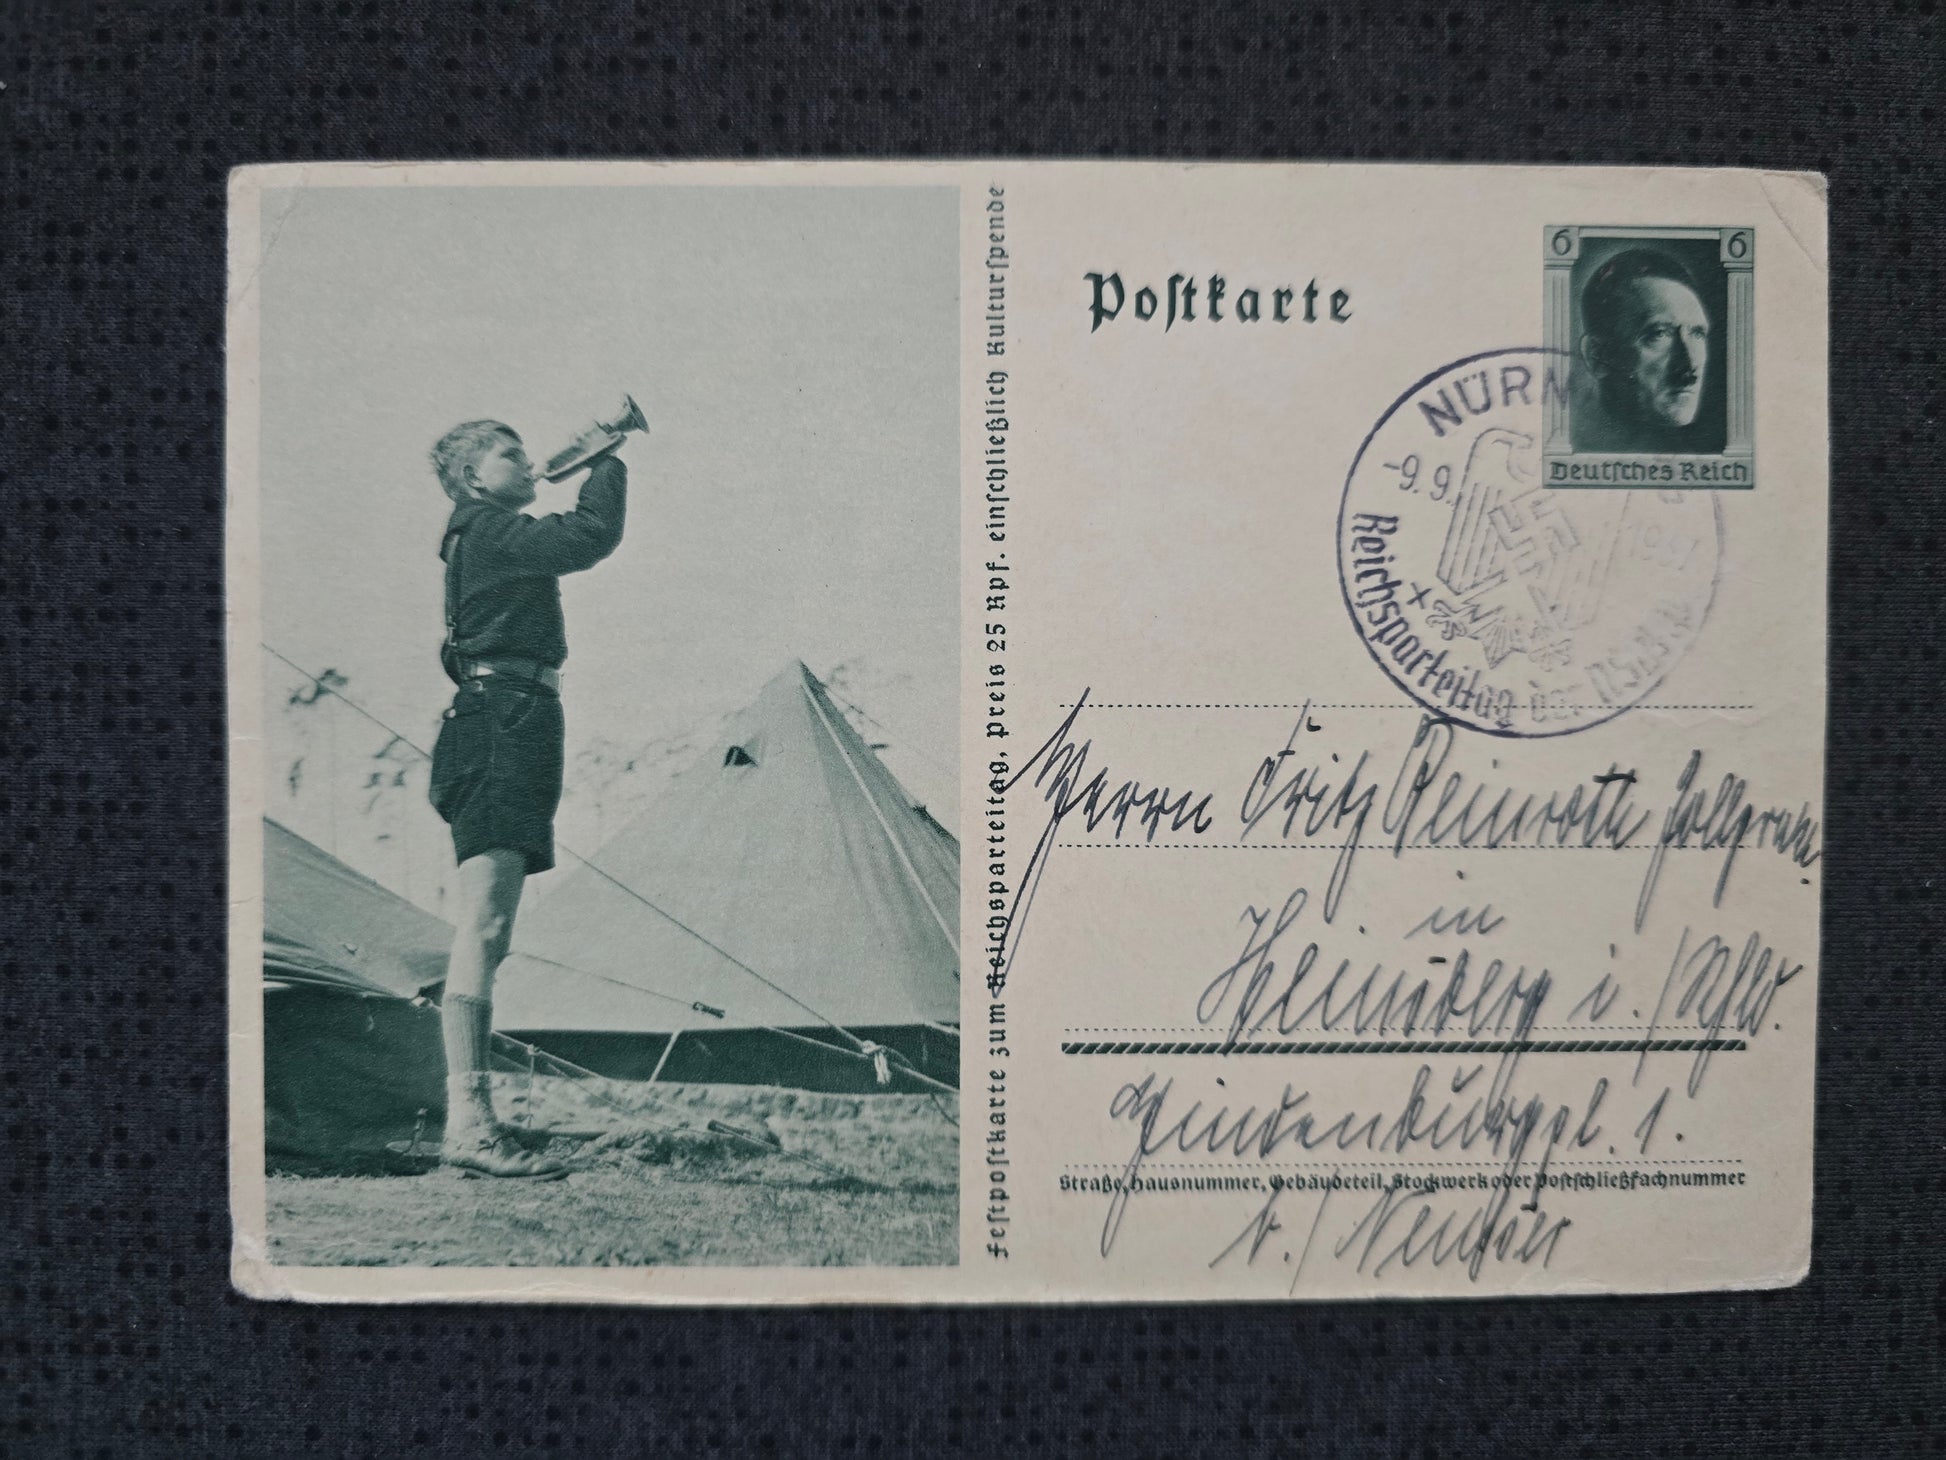 Festpostkarte zum Reichsparteitag, Preis 25 Rpf. einschließlich Kulturspende
Postkarte
6 6
Deutsches Reich
NÜRN
-9.9.
1937
Reichsparteitag der NSDAP
Herrn Fritz Reinroth
in
Heinsberg i./Rhld.
Hindenburgpl. 1.
Straße, Hausnummer, Gebäudeteil, Stockwerk oder Postschließfachnummer
b./